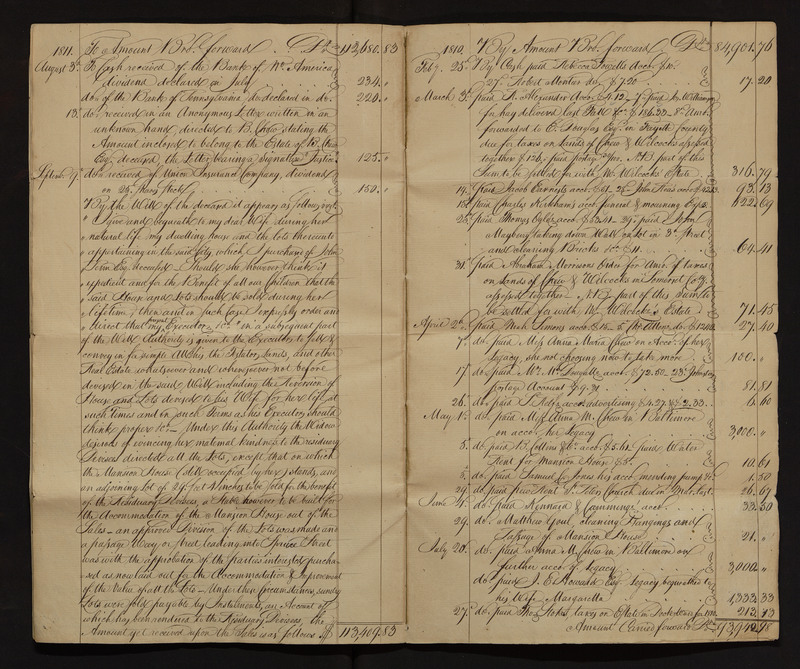 1811. To Amount Bro.t forward . . Drs 113,680.83
August 3d. To Cash received of the Bank of No. America
dividend declared in July 234. "
do. of the Bank of Pennsylvania do declared in do. 220. "
13. do received in an Anonymous Letter written in an
unknown hand directed to B. Chew stating the
Amount inclosed to belong to the Estate of B. Chew
Esq. deceased, the Letter bearing a Signature Justice 125. "
do received of Union Insurance Company, dividend
on 25 shares Stock 150. "
By the Will of the deceased it appears as follows
"I give and bequeath to my dear Wife during her
" natural life my dwelling house and the lots thereunto
" appertaining in the said City, which I purchased of John
Penn Esq. deceased. Should she however think it
expedient and for the Benefit of all our Children that the
said House and Lots should be sold during her
lifetime, then and in such Case I expressly order and
direct that my Executors &c." in a subsequent part
of the Will Authority is given to the Executors to sell &
convey in fee simple all his the Testators lands, and other
Real Estate whatsoever and wheresoever not before
devised in the said Will including the Reversion of
House and Lots devised to his Wife for her life at
such Times and on such terms as his Executors should
think proper &c. — Under this Authority the Widow
desirous of evincing her maternal kindness to the residuary
Devisees directed all the Lots, except that on which
the Mansion House (still occupied by her) stands, and
an adjoining lot of 24 feet inches to be sold for the benefit
of the Residuary Devisees, a Stable however to be built for
the Accommodation of the Mansion House out of the
Sales — an approved Division of the Lots was made and
a passage Way or Street leading into Spruce Street
was with the approbation of the parties interested purcha-
sed as now laid out for the Accommodation & improvement
of the Value of all the Lots — Under these circumstances, sundry
Lots were sold payable by Instalments, an Account of
which has been rendered to the Residuary Devisees, the
Amount yet received upon the Sales is as follows 113,409.83
1810. By Amount Bro.t forward Drs 84,901.76
Feby. 25. By Cash paid Rebecca Powells Acco. $10.
27. Robert Menteur do. $7.20 17.20
March 3d. paid A. Alexander Acco. $4.12 — 7. paid
for hay delivered last Fall &c. $186.33 — 8. Amt.
forwarded to E. Douglas Esq. in Fayette County
due for taxes on lands of Chew & Wilcocks assessed
together $126, paid postage N.B. part of this
Sum to be settled for with W. Wilcocks' Estate 316.79
14. paid Jacob Earnests acco. $61. 26 John Hais acco. 93.13
15. paid Charles Kirkhams acco. funeral & mourning Exps. 622.69
28. paid Thomas Ogles acco. $53.41. 29. paid John
Mayburg taking down Wall on Lot in 3d. Street
and cleaning Bricks &c. $11 64.41
31. paid Abraham Morrisons Order for Amt. of taxes
on Lands of Chew & Wilcocks in Somerset Coty.
assessed together — N.B. part of this Sum to
be settled for with W. Wilcocks's Estate 71.45
April 2d. paid acco. $15 27.40
7. do. paid Miss Anna Maria Chew on Acco. of her
legacy, she not choosing now to take more 100. "
17. do paid Mr. Wm. Dougalls acco. $72.50 23d. Johnson
postage Account $9.31 81.81
26. do. paid acco. advertising $4.27 & $2.33 6.60
May 1. do. paid Miss Ann M. Chew in Baltimore
on acco. her Legacy 3,000. "
5. do. paid Collins & Co. acco. $5.61 paid Water
Rent for Mansion House $5. 10.61
5. do. paid Samuel Jones his acco. mending pump &c. 1.50
29. do. paid pew Rent St. Peters Church due in Mar. last 26.67
June 4. do. paid Kinnard & Cummings acco. 33.50
29. do. Matthew Youl, cleaning Hangings and
Passage of Mansion House 21. "
July 20. do. paid Anna M. Chew in Baltimore on
further acco. of Legacy 3,000. "
do. paid J. E. Howard Esq. Legacy bequeathed to
his Wife Margaretta 1333.33
27. do. paid Thos. Stokes, taxes on Estate in for 1810. 212.13
Amount Carried forward Drs 93,942.98